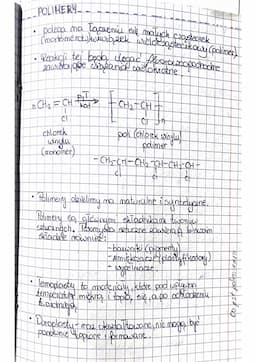 POLIMERY
• polega na łączeniu się małych cząsteczek
(monomerów) w związek wielocząsteczkowy (polimer).
• Reakcji tej będą ulegać
zawierające wiązania wielokrotne
nCH₂ = CH p,T kat [ CH₂-CH ]n
Cl Cl
chlorek winylu (monomer)
poli (chlorek winylu) polimer
-CH₂-CH-CH₂-CH-CH₂-CH-
Cl Cl Cl
• Polimery dzielimy na naturalne i syntetyczne.
Polimery są głównym składnikiem tworzyw
sztucznych. Tworzywa sztuczne zawierają
składniki również:
- barwniki (pigmenty)
- zmiękczacze (plastyfikatory)
- wypełniacze.
• Termoplasty to materiały, które pod wpływem
temperatury miękną i topią się, a po ochłodzeniu
twardnieją
• Duroplasty - raz ukształtowane, nie mogą być
ponownie stopione i formowane.